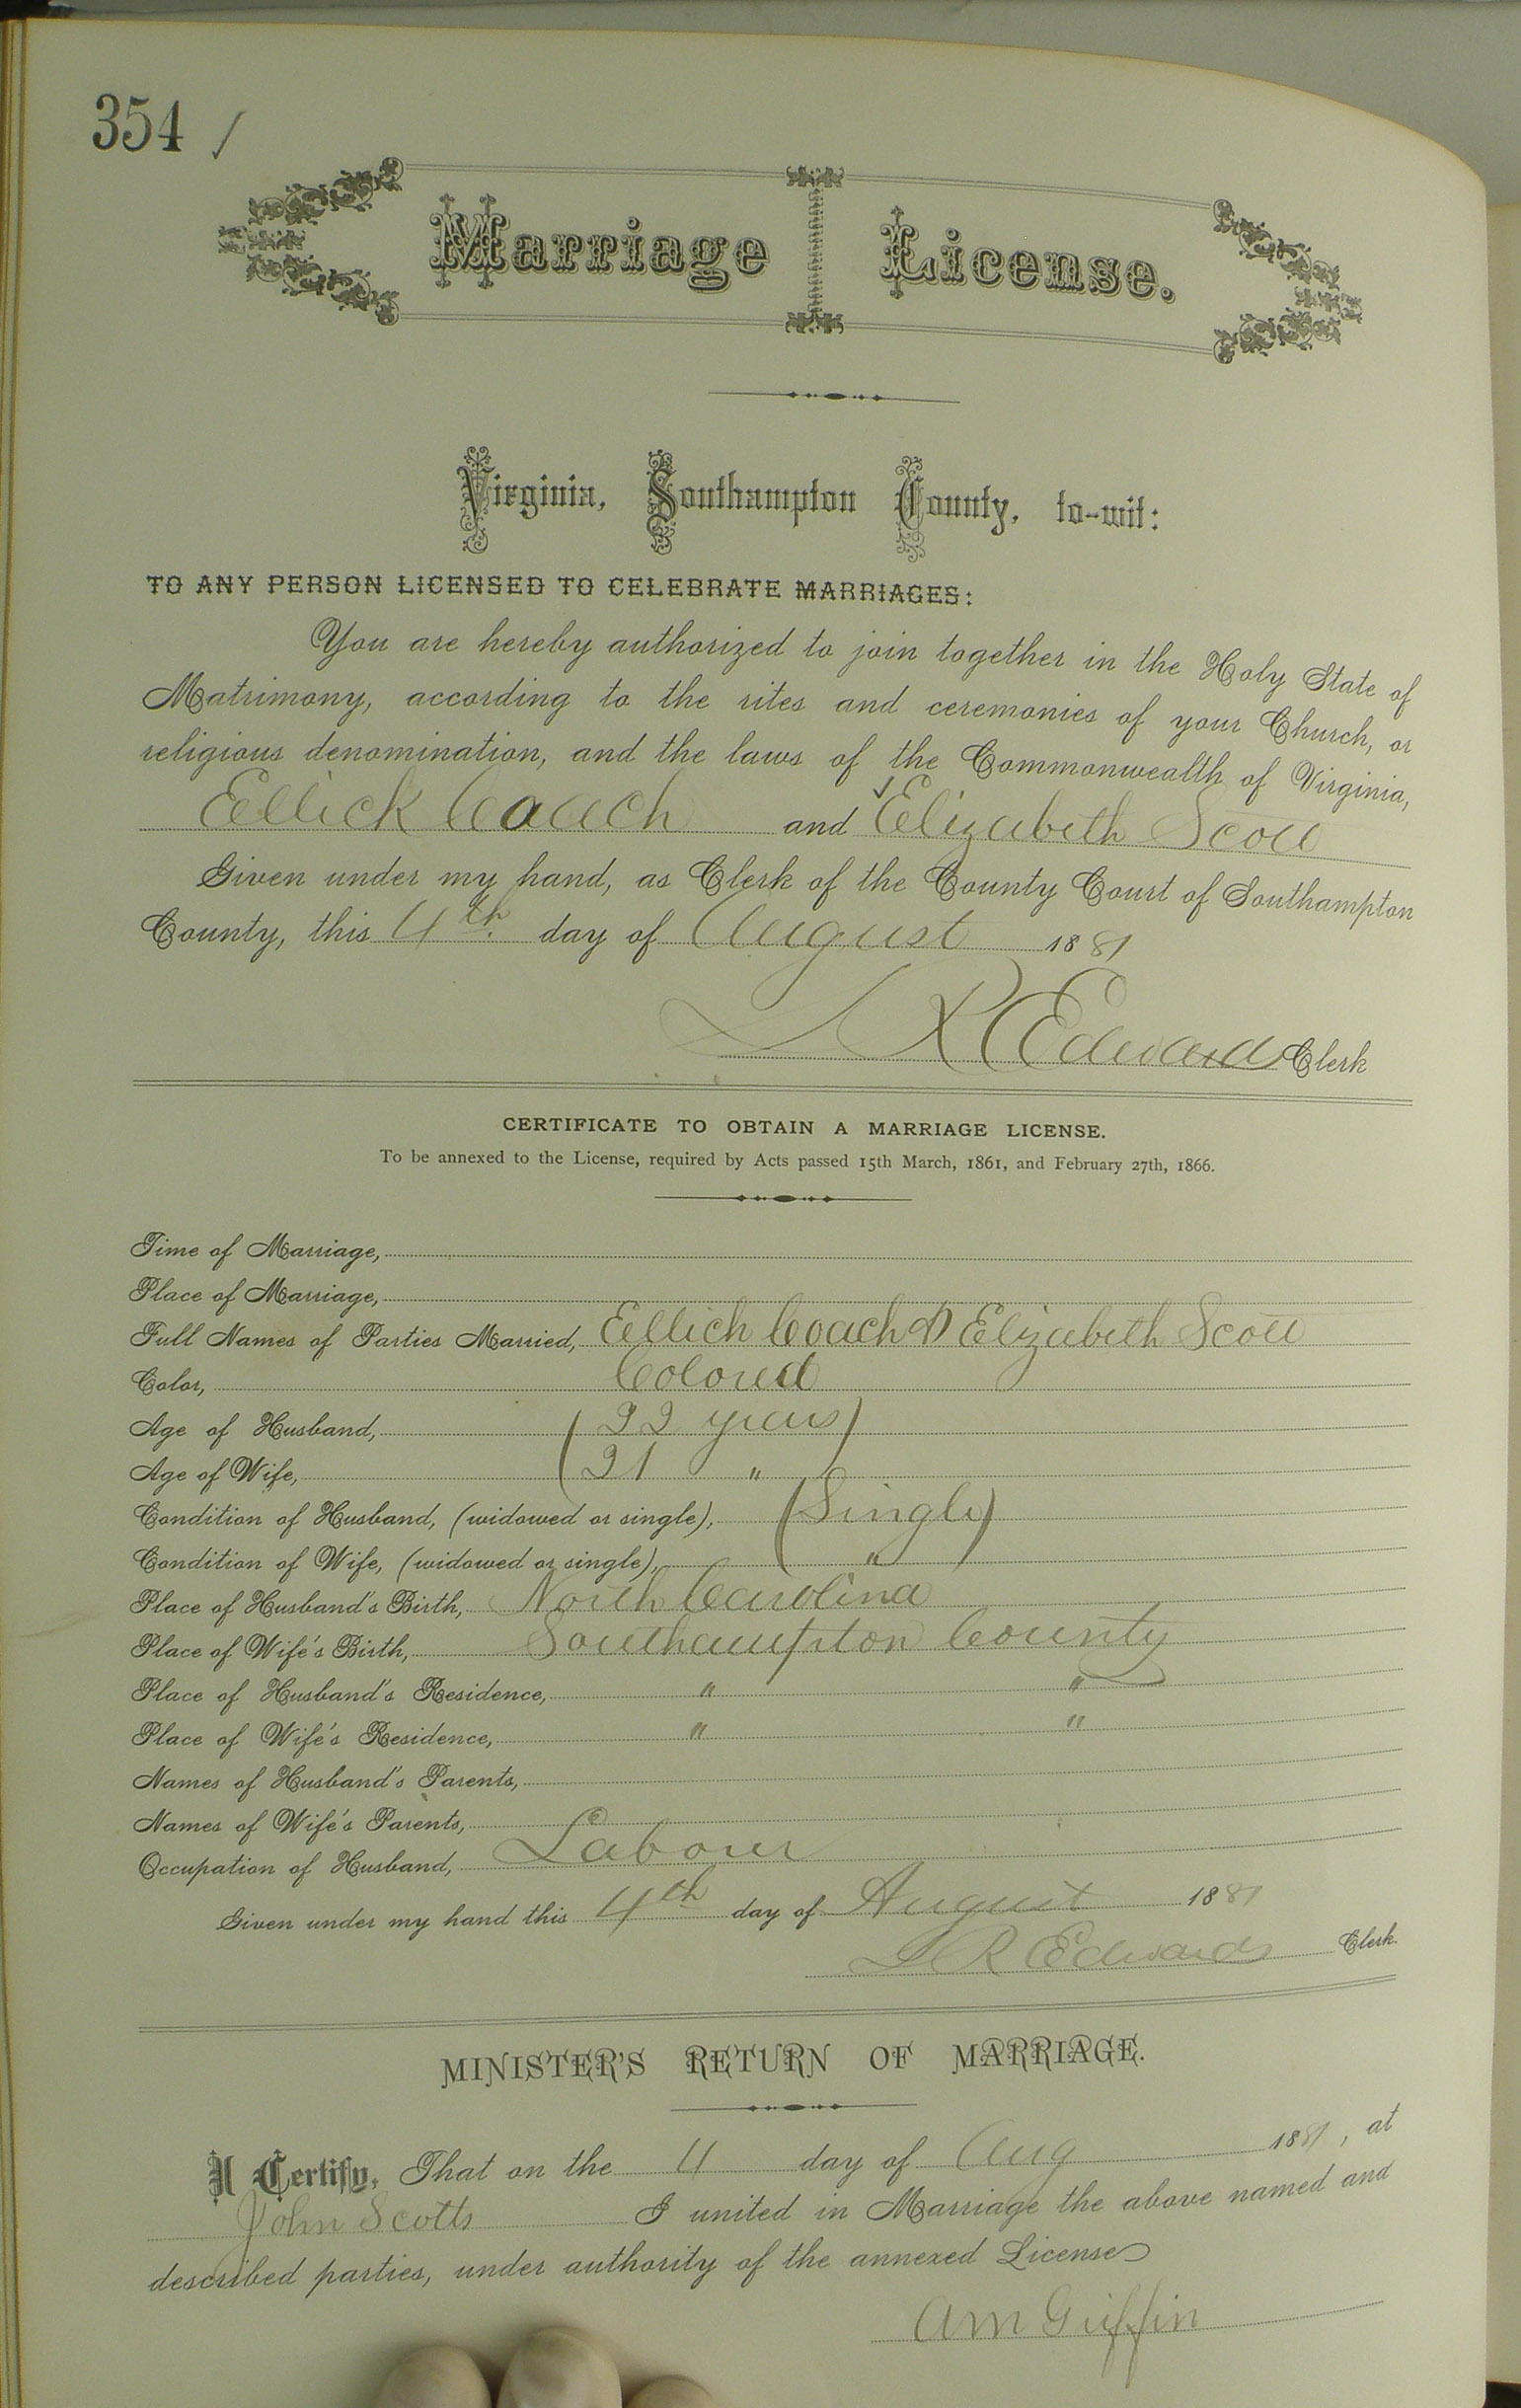 354 /
Marriage License.
Virginia, Southampton County, to-wit:
TO ANY PERSON LICENSED TO CELEBRATE MARRIAGES:
You are hereby authorized to join together in the Holy State of
Matrimony, according to the rites and ceremonies of your Church, or
religious denomination, and the laws of the Commonwealth of Virginia,
Ellick Coach and Elizabeth Scott
Given under my hand, as Clerk of the County Court of Southampton
County, this 4th day of August 1881
L R Edwards Clerk
CERTIFICATE TO OBTAIN A MARRIAGE LICENSE.
To be annexed to the License, required by Acts passed 15th March, 1861, and February 27th, 1866.
Time of Marriage,
Place of Marriage,
Full Names of Parties Married, Ellich Coach & Elizabeth Scott
Color, Colored
Age of Husband, 22 years
Age of Wife, 21 "
Condition of Husband, (widowed or single), (Single)
Condition of Wife, (widowed or single), "
Place of Husband's Birth, North Carolina
Place of Wife's Birth, Southampton County
Place of Husband's Residence, " "
Place of Wife's Residence, " "
Names of Husband's Parents,
Names of Wife's Parents,
Occupation of Husband, Laborer
Given under my hand this 4th day of August 1881
L R Edwards Clerk.
MINISTER'S RETURN OF MARRIAGE.
I Certify, That on the 4 day of Aug 1881, at
John Scotts I united in Marriage the above named and
described parties, under authority of the annexed License
A M Griffin